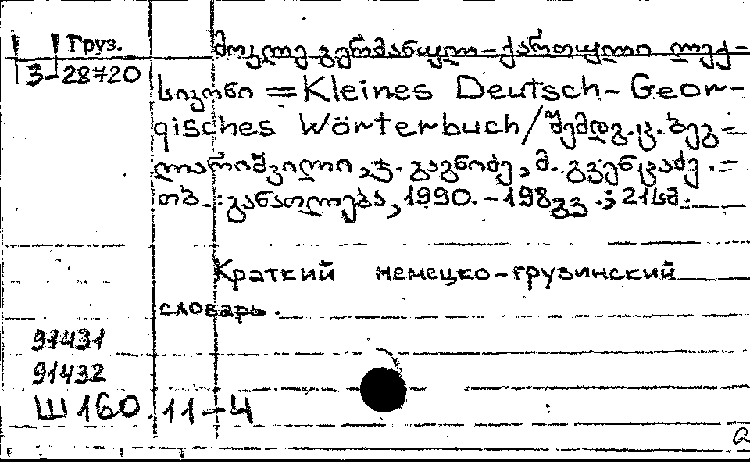 Груз.
3-28720
მოკლე გერმანულ-ქართული ლექ-
სიკონი = Kleines Deutsch-Geor-
gisches Wörterbuch/შემდგ. ც. ბეგ-
ლარიშვილი, ჟ. გაგნიძე, მ. გვენცაძე. -
თბ.: განათლება, 1990. - 198გვ.; 21სმ.
Краткий немецко-грузинский
словарь.
91431
91432
Ш160.11-4